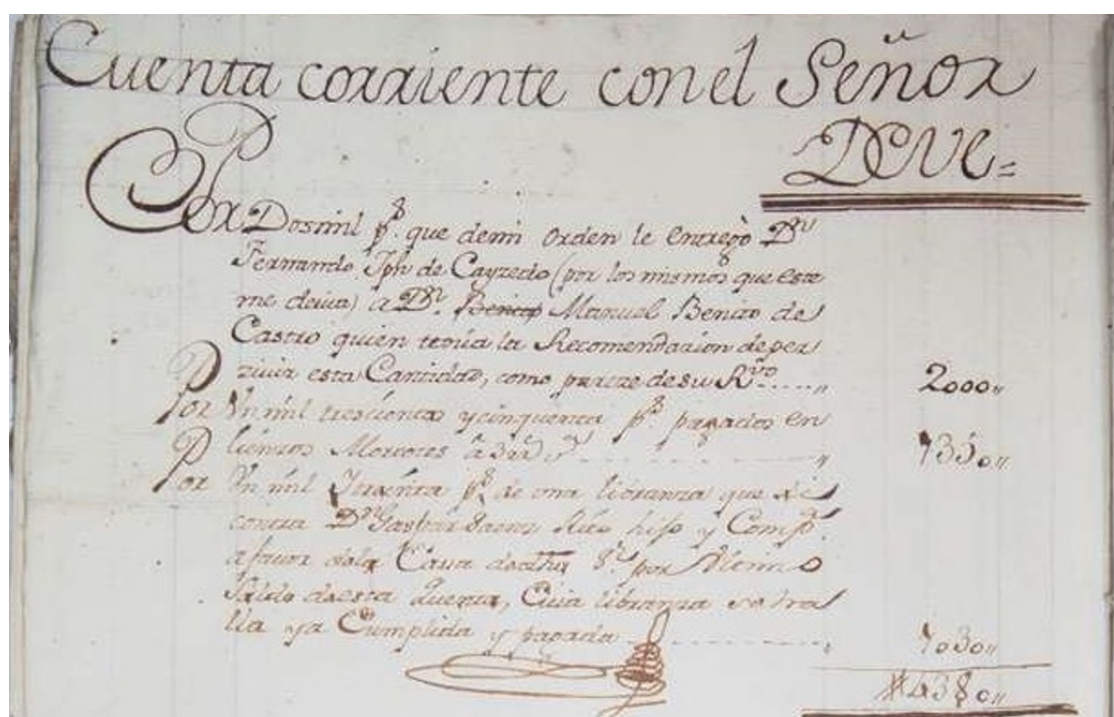 Cuenta corriente con el Señor
DeVe=
Por Dosmil p.s que demi orden le entregò D.n
Fernando Jph de Cayzedo (por los mismos que este
me devia) a D.n Manuel Benito de
Castro quien tenia la Recomendacion de per
zivir esta Cantidad, como pareze de su R.vo ..... 2000,,
Por Un mil trescientos y cinquenta p.s pagados en
Lienzos Morcotes 1350,,
Por Un mil y treinta p.s de una libranza que
contra D.n Gaspar hijo y Comp.a
a favor dela Casa por
Saldo de esta Quenta, Cuia libranza se ha
lla ya Cumplida y pagada 1030,,
4380,,